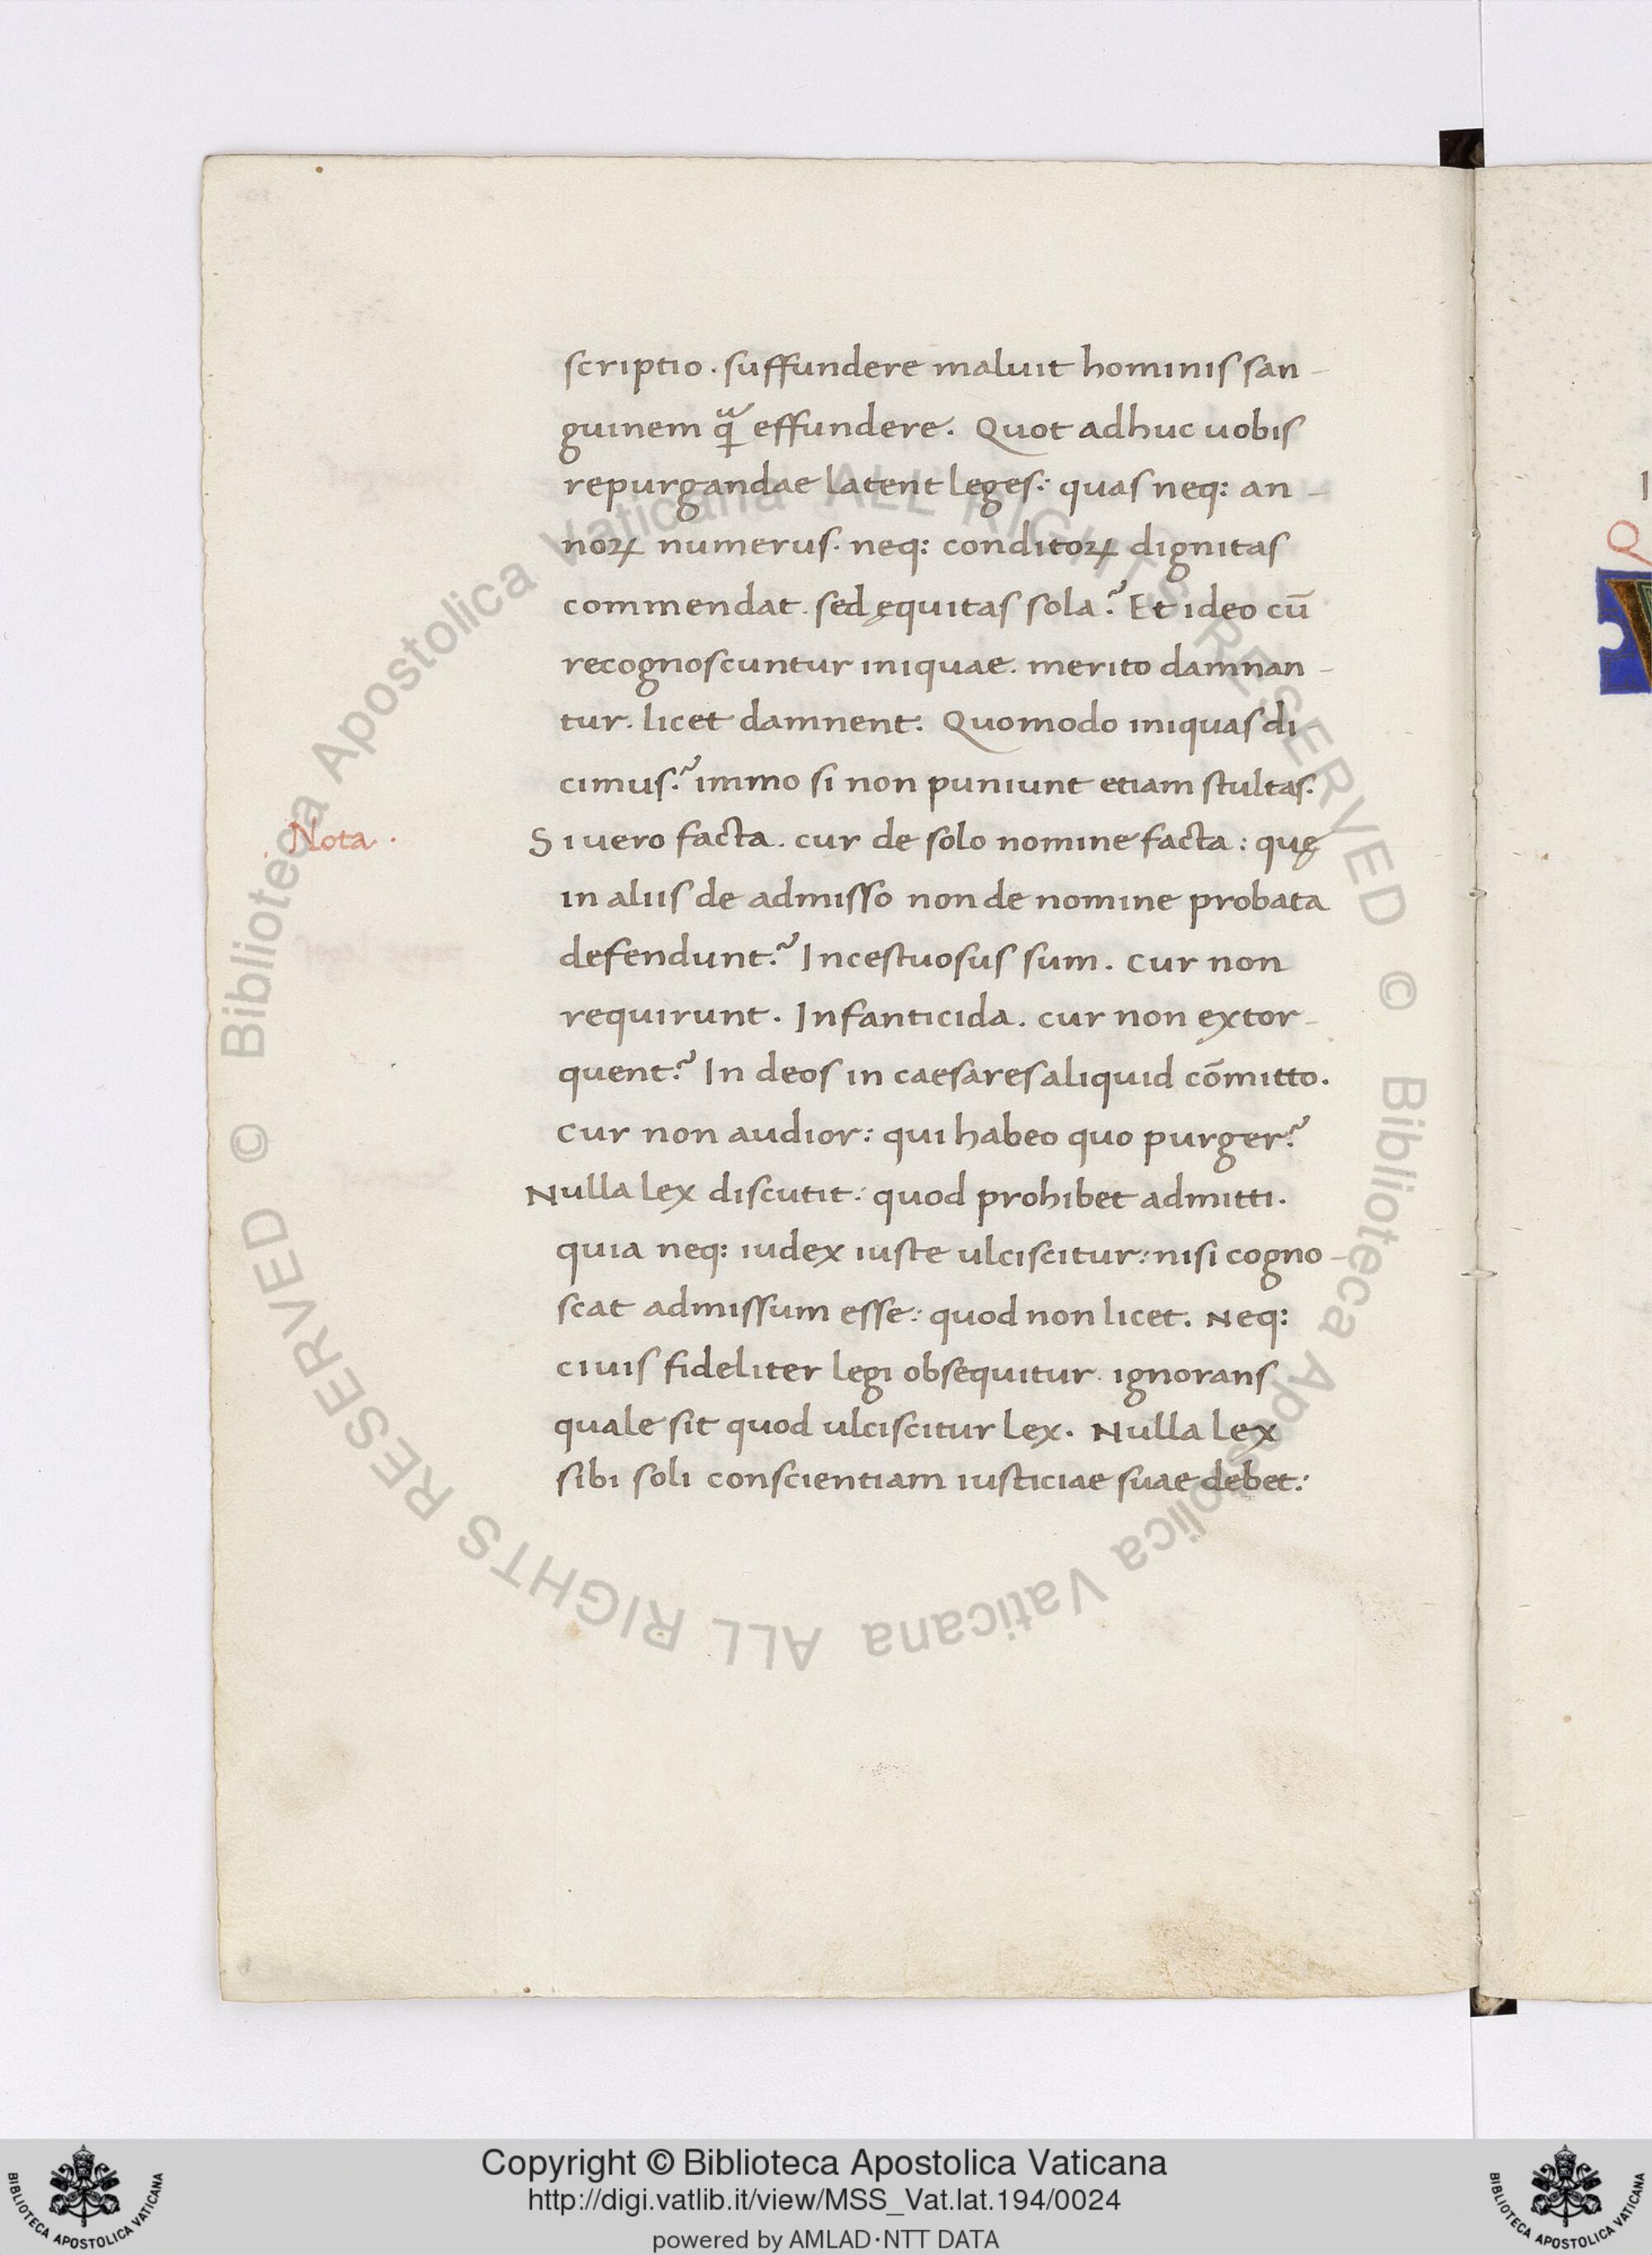 scriptio. suffundere maluit hominis san-
guinem qᷓ effundere. Quot adhuc uobis
repurgandae latent leges: quas neq: an-
noꝝ numerus. neq: conditoꝝ dignitas
commendat. sed ęquitas sola? Et ideo cū
recognoscuntur iniquae. merito damnan-
tur. licet damnent. Quomodo iniquas di-
cimus? immo si non puniunt etiam stultas.
Nota.
Si uero facta. cur de solo nomine facta: quę
in aliis de admisso non de nomine probata
defendunt? Incestuosus sum. cur non
requirunt. Infanticida. cur non extor-
quent? In deos in caesares aliquid cōmitto.
cur non audior: qui habeo quo purger?
Nulla lex discutit: quod prohibet admitti.
quia neq: iudex iuste ulciscitur: nisi cogno-
scat admissum esse: quod non licet. Neq:
ciuis fideliter legi obsequitur. ignorans
quale sit quod ulciscitur lex. Nulla lex
sibi soli conscientiam iusticiae suae debet:
© Biblioteca Apostolica Vaticana ALL RIGHTS RESERVED
© Biblioteca Apostolica Vaticana ALL RIGHTS RESERVED
Copyright © Biblioteca Apostolica Vaticana
http://digi.vatlib.it/view/MSS_Vat.lat.194/0024
powered by AMLAD·NTT DATA
BIBLIOTECA APOSTOLICA VATICANA
BIBLIOTECA APOSTOLICA VATICANA